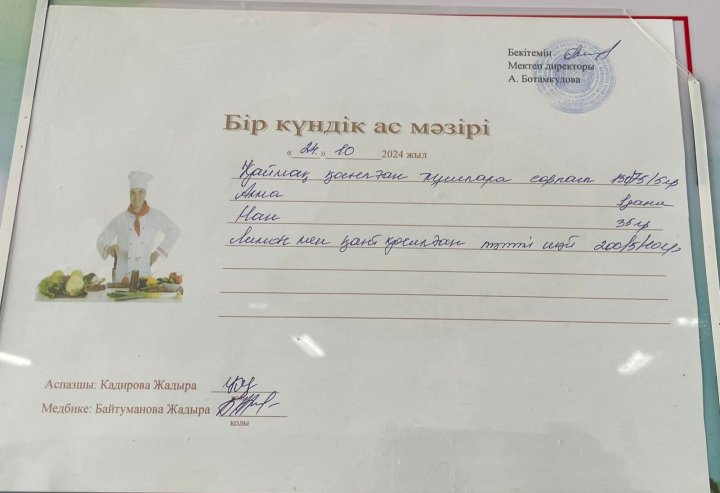 Бекітемін
Мектеп директоры
А. Ботамкулова
Бір күндік ас мәзірі
« 24 » 10 2024 жыл
Қаймақ қосылған тұшпара сорпасы 130/75/5гр
Алма 1дана
Нан 35гр
Лимон мен қант қосылған тәтті шай 200/5/10гр
Аспазшы: Кадирова Жадыра
Медбике: Байтуманова Жадыра
қолы